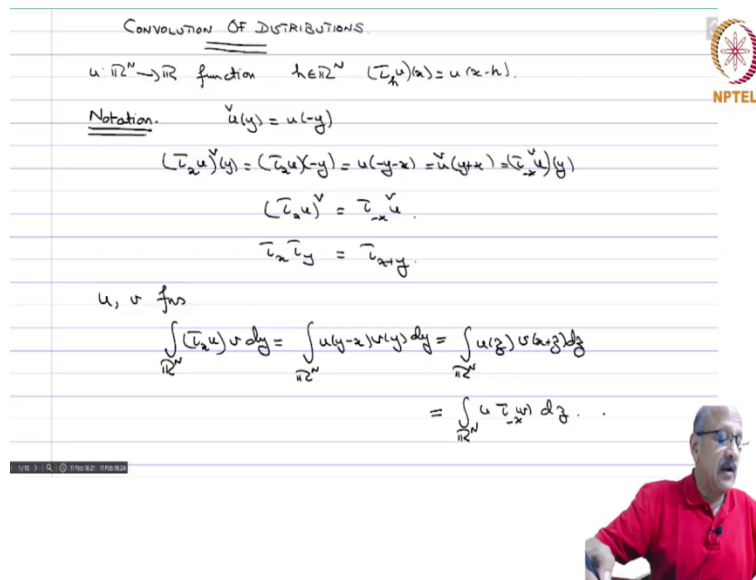 CONVOLUTION OF DISTRIBUTIONS.
u: ℝᴺ → ℝ function h∈ℝᴺ (τₕu)(x) = u(x-h).
NPTEL
Notation. ǔ(y) = u(-y)
(τₓu)ˇ(y) = (τₓu)(-y) = u(-y-x) = ǔ(y+x) = (τ₋ₓǔ)(y)
(τₓu)ˇ = τ₋ₓǔ.
τₓτ_y = τ_{x+y}.
u, v fns
∫_{ℝᴺ} (τₓu) v dy = ∫_{ℝᴺ} u(y-x)v(y)dy = ∫_{ℝᴺ} u(z) v(x+z)dz
= ∫_{ℝᴺ} u τ₋ₓv dz.